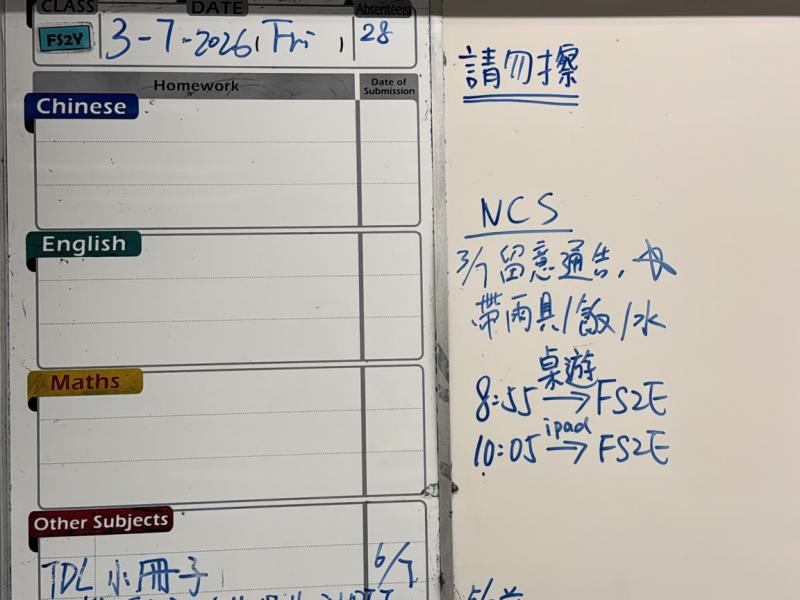 CLASS DATE Absentees
FS2Y 3-7-2026 (Fri) 28
Homework Date of Submission
Chinese
English
Maths
Other Subjects
TDL 小冊子 6/7
請勿擦
NCS
3/7 留意通告,
帶雨具/飯/水
桌遊
8:55 → FS2E
ipad
10:05 → FS2E